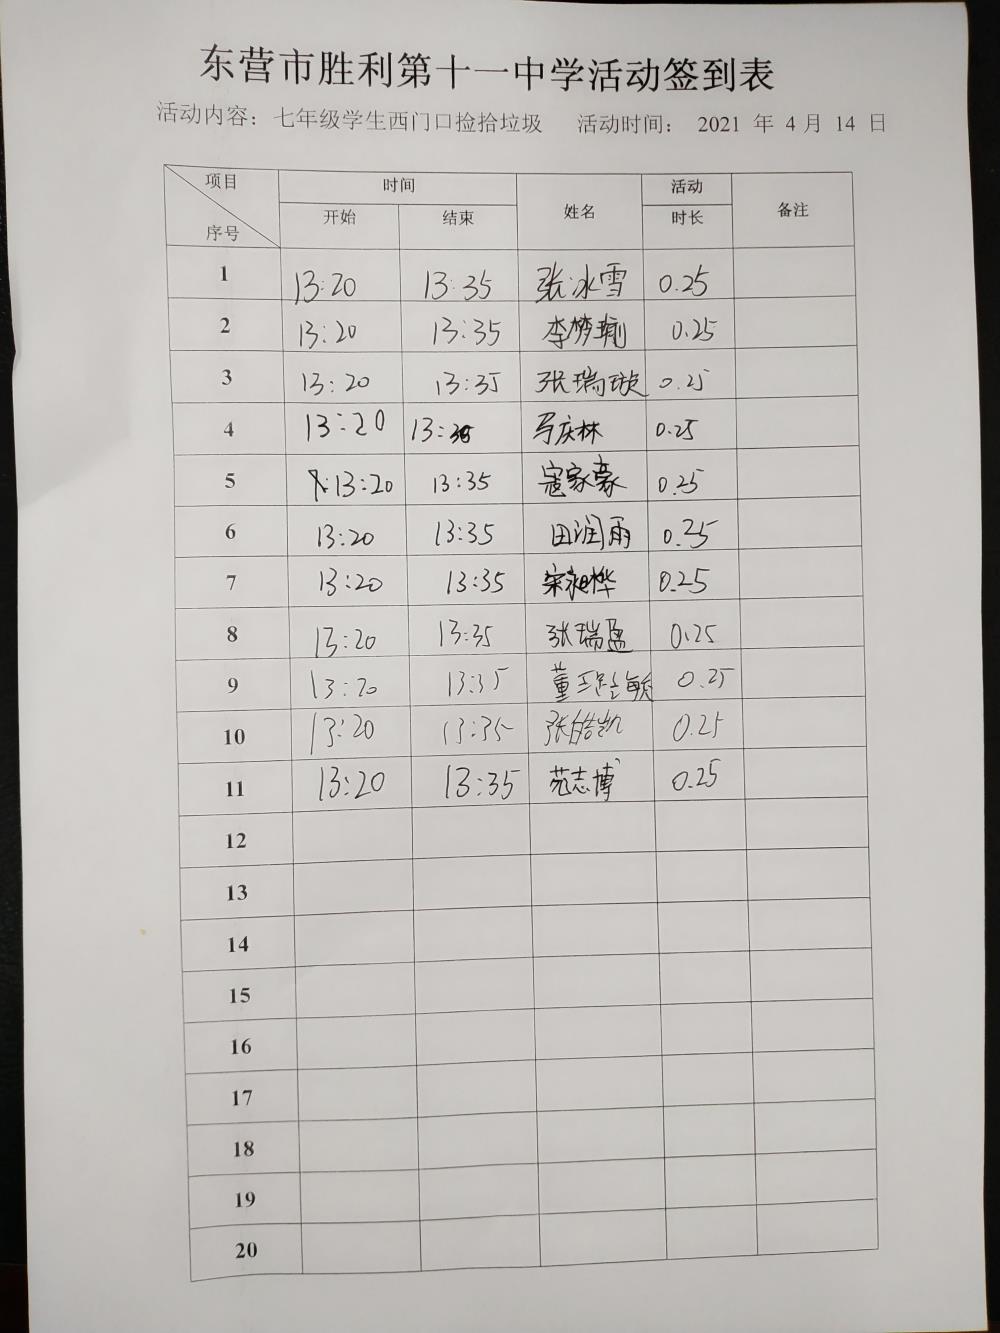 东营市胜利第十一中学活动签到表
活动内容：七年级学生西门口捡拾垃圾 活动时间： 2021 年 4 月 14 日
项目 时间 姓名 活动 备注
序号 开始 结束 时长
1 13:20 13:35 张冰雪 0.25
2 13:20 13:35 李梦 0.25
3 13:20 13:35 张瑞璇 0.25
4 13:20 13:35 马庆林 0.25
5 13:20 13:35 寇家豪 0.25
6 13:20 13:35 田润雨 0.25
7 13:20 13:35 宋昶桦 0.25
8 13:20 13:35 张瑞盈 0.25
9 13:20 13:35 董 0.25
10 13:20 13:35 张皓凯 0.25
11 13:20 13:35 苑志博 0.25
12
13
14
15
16
17
18
19
20